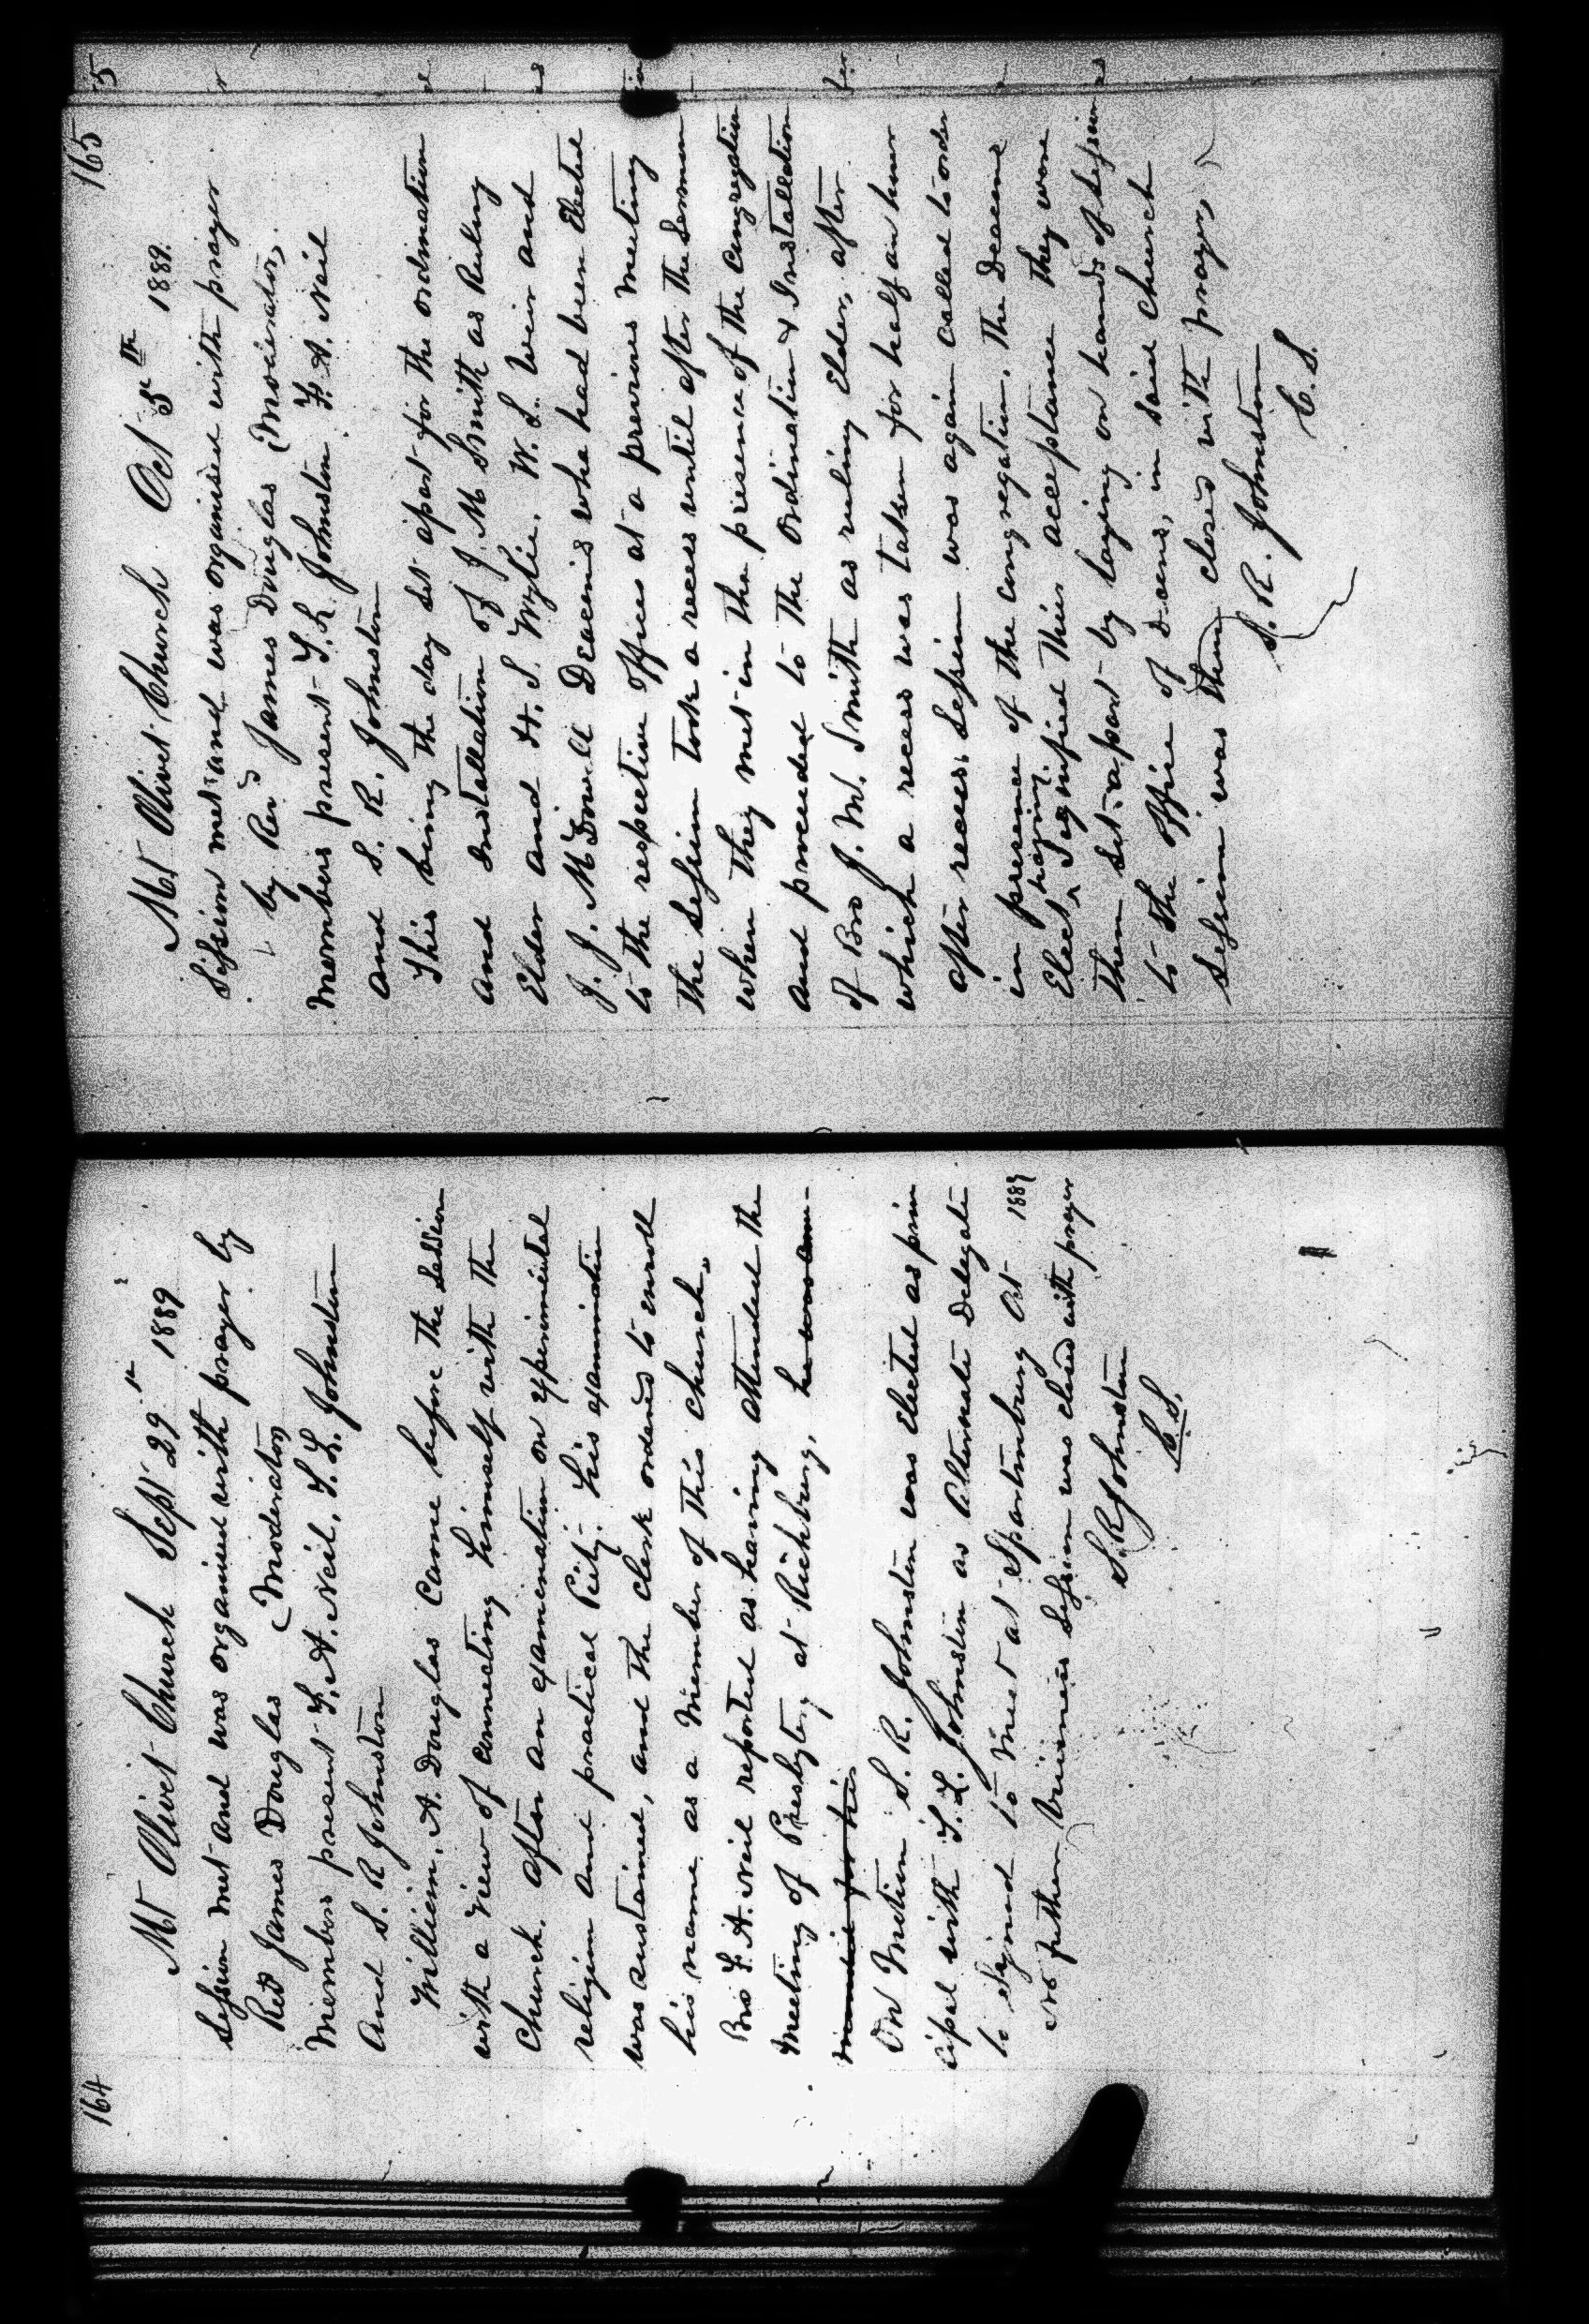 164
Mt Olivet Church Sept 29th 1889
Session met and was organised with prayer by
Revd James Douglas (Moderator)
Members present F. A. Neil, T. L. Johnston
And S. R Johnston
William. A. Douglas Came before the Session
with a view of connecting himself with the
Church. after an examination on experimental
religion and practical Piety. his examination
was sustained, and the clerk ordered to enroll
his name as a Member of this church.
Bro F. A. Neil reported as having attended the
Meeting of Presbytery at Richburg, he was com-
mended for his
On Motion S. R. Johnston was elected as prin
cipal with T. L. Johnston as Alternate Delegate
to Synod to meet at Spartinburg Oct 1889
No further business Session was closed with prayer
S. R Johnston
C. S.
165
Mt Olivet Church Oct 5th 1889.
Session met and was organised with prayer
by Revd James Douglas (Moderator,
Members present T. L. Johnston F. A. Neil
and S. R. Johnston
This being the day set apart for the ordination
and installation of J. M Smith as Ruling
Elder and H. S. Wylie, W. S. Weir and
J. J. McDowell Deacons who had been Elected
to the respective offices at a previous meeting
the Session took a recess until after the Sermon
when they met in the presence of the Congregation
and proceeded to the Ordination & Installation
of Bro J. M. Smith as ruling Elder, after
which a recess was taken for half an hour
after recess, Session was again called to order
in presence of the congregation. The Deacons
Elect having Signified their acceptance they were
then set apart by laying on hands of Session
to the office of Deacons, in said church
Session was then closed with prayer,
S. R. Johnston
C. S.